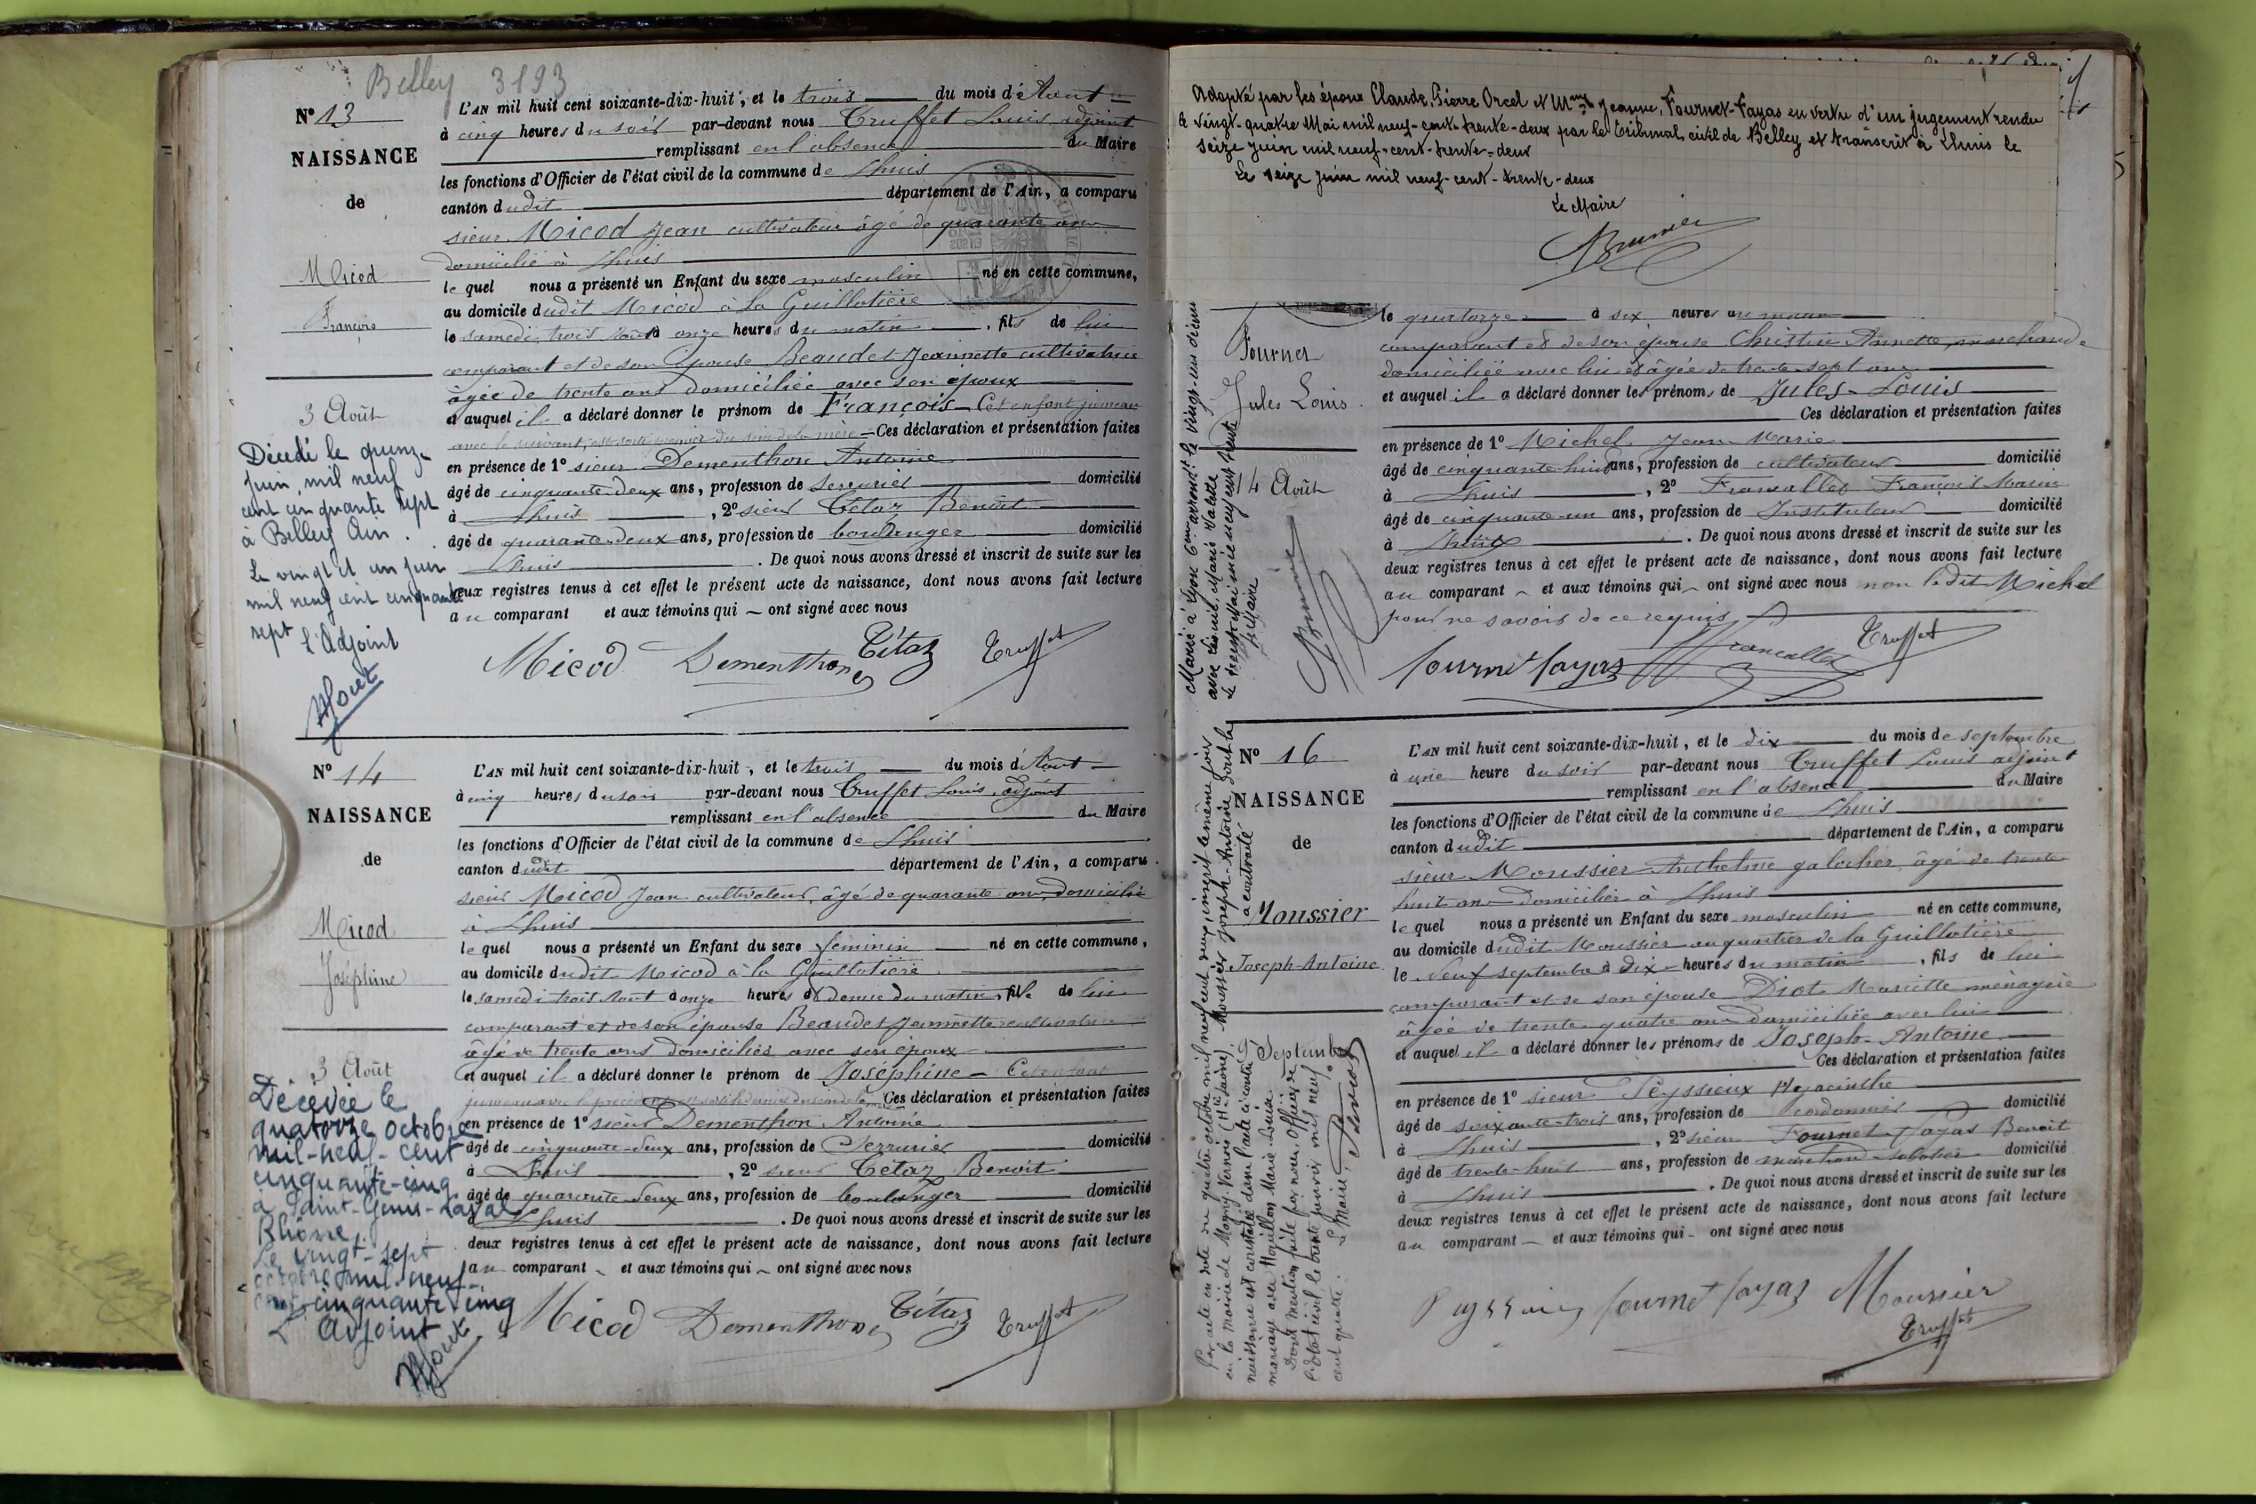 Belley 3193
Nº 13
NAISSANCE
de
Micod
François
3 Août
Décédé le quinze
Juin, mil neuf
cent cinquante sept
à Belley Ain.
Le vingt et un juin
mil neuf cent cinquante
sept L'Adjoint
L'AN mil huit cent soixante-dix-huit, et le trois du mois d'Août
à cinq heures du soir par-devant nous Truffet Louis adjoint
remplissant en l'absence du Maire
les fonctions d'Officier de l'état civil de la commune de Lhuis
canton dudit département de l'Ain, a comparu
sieur Micod Jean cultivateur âgé de quarante ans
domicilié à Lhuis
lequel nous a présenté un Enfant du sexe masculin né en cette commune,
au domicile dudit Micod à la Guillotière
le samedi trois août à onze heures du matin, fils de lui
comparant et de son épouse Beaudet Jeannette cultivatrice
âgée de trente ans domiciliée avec son époux
et auquel il a déclaré donner le prénom de François – Cet enfant jumeau
avec le suivant, est sorti premier du sein de la mère – Ces déclaration et présentation faites
en présence de 1º sieur Dementhon Antoine
âgé de cinquante-deux ans, profession de serrurier domicilié
à Lhuis, 2º sieur Tétaz Benoît
âgé de quarante-deux ans, profession de boulanger domicilié
Lhuis. De quoi nous avons dressé et inscrit de suite sur les
deux registres tenus à cet effet le présent acte de naissance, dont nous avons fait lecture
au comparant et aux témoins qui ont signé avec nous
Micod Dementhon Tétaz Truffet
Nº 14
NAISSANCE
de
Micod
Joséphine
3 Août
Décédée le
quatorze octobre
mil-neuf-cent
cinquante-cinq
à Saint-Genis-Laval
Rhône.
Le vingt-sept
octobre mil-neuf-
cent-cinquante-cinq
L'adjoint
L'AN mil huit cent soixante-dix-huit, et le trois du mois d'Août
à cinq heures du soir par-devant nous Truffet Louis, adjoint
remplissant en l'absence du Maire
les fonctions d'Officier de l'état civil de la commune de Lhuis
canton dudit département de l'Ain, a comparu
sieur Micod Jean cultivateur, âgé de quarante ans domicilié
à Lhuis
lequel nous a présenté un Enfant du sexe féminin né en cette commune,
au domicile dudit Micod à la Guillotière
le samedi trois août à onze heures & demie du matin, fille de lui
comparant et de son épouse Beaudet Jeannette cultivatrice
âgée de trente ans domiciliée avec son époux
et auquel il a déclaré donner le prénom de Joséphine – Cet enfant
Ces déclaration et présentation faites
en présence de 1º sieur Dementhon Antoine
âgé de cinquante-deux ans, profession de Serrurier domicilié
à Lhuis, 2º sieur Tétaz Benoît
âgé de quarante-deux ans, profession de boulanger domicilié
à Lhuis. De quoi nous avons dressé et inscrit de suite sur les
deux registres tenus à cet effet le présent acte de naissance, dont nous avons fait lecture
au comparant et aux témoins qui ont signé avec nous
Micod Dementhon Tétaz Truffet
Adopté par les époux Claude, Pierre Orcel et Mme Jeanne, Fournet-Fayas en vertu d'un jugement rendu
le vingt-quatre Mai mil neuf-cent-trente-deux par le Tribunal civil de Belley et transcrit à Lhuis le
seize juin mil neuf-cent-trente-deux
Le seize juin mil neuf-cent-trente-deux
Le Maire
Brunier
Fournet
Jules Louis
14 Août
Marié à Lyon 6me arrondt le vingt-un décembre
Le Maire
le quatorze à six heures du matin
comparant et de son épouse Christin Annette, marchande
domiciliée avec lui et âgée de trente-sept ans
et auquel il a déclaré donner les prénoms de Jules-Louis
Ces déclaration et présentation faites
en présence de 1º Michel Jean Marie
âgé de cinquante-huit ans, profession de cultivateur domicilié
à Lhuis, 2º Francallet François Marie
âgé de cinquante-un ans, profession de Instituteur domicilié
à Lhuis. De quoi nous avons dressé et inscrit de suite sur les
deux registres tenus à cet effet le présent acte de naissance, dont nous avons fait lecture
au comparant et aux témoins qui ont signé avec nous non ledit Michel
pour ne savoir de ce requis
fournet fayas Francallet Truffet
Nº 16
NAISSANCE
de
Moussier
Joseph-Antoine
Septembre
Par acte en date du quatre octobre mil neuf cent deux, inscrit le même jour
en la mairie de Magny-Vernois (Hte Saône), Moussier Joseph-Antoine, dont la
naissance est constatée dans l'acte ci-contre, a contracté
mariage avec Houillon Marie Louise.
Dont mention faite par nous, Officier de
l'état civil, le trente janvier mil neuf
cent quatre. Le Maire,
L'AN mil huit cent soixante-dix-huit, et le dix du mois de septembre
à une heure du soir par-devant nous Truffet Louis adjoint
remplissant en l'absence du Maire
les fonctions d'Officier de l'état civil de la commune de Lhuis
canton dudit département de l'Ain, a comparu
sieur Moussier Anthelme galochier, âgé de trente
huit ans domicilié à Lhuis
lequel nous a présenté un Enfant du sexe masculin né en cette commune,
au domicile dudit Moussier au quartier de la Guillotière
le neuf septembre à dix heures du matin, fils de lui
comparant et de son épouse Diot Mariette ménagère
âgée de trente quatre ans domiciliée avec lui
et auquel il a déclaré donner les prénoms de Joseph-Antoine
Ces déclaration et présentation faites
en présence de 1º sieur Peyssieux Hyacinthe
âgé de soixante-trois ans, profession de cordonnier domicilié
à Lhuis, 2º sieur Fournet-Fayas Benoît
âgé de trente-huit ans, profession de marchand sabotier domicilié
à Lhuis. De quoi nous avons dressé et inscrit de suite sur les
deux registres tenus à cet effet le présent acte de naissance, dont nous avons fait lecture
au comparant et aux témoins qui ont signé avec nous
fournet fayas Moussier
Truffet